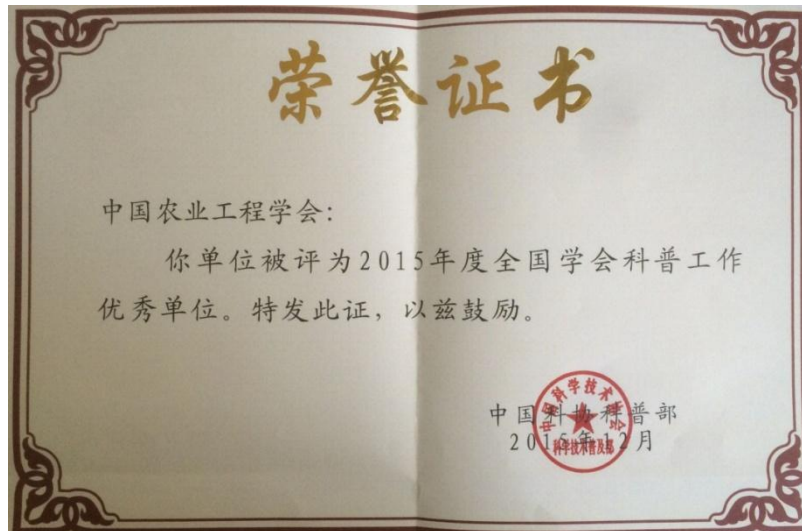 荣誉证书
中国农业工程学会：
你单位被评为2015年度全国学会科普工作
优秀单位。特发此证，以兹鼓励。
中国科协科普部
2015年12月
中国科学技术协会
科学技术普及部